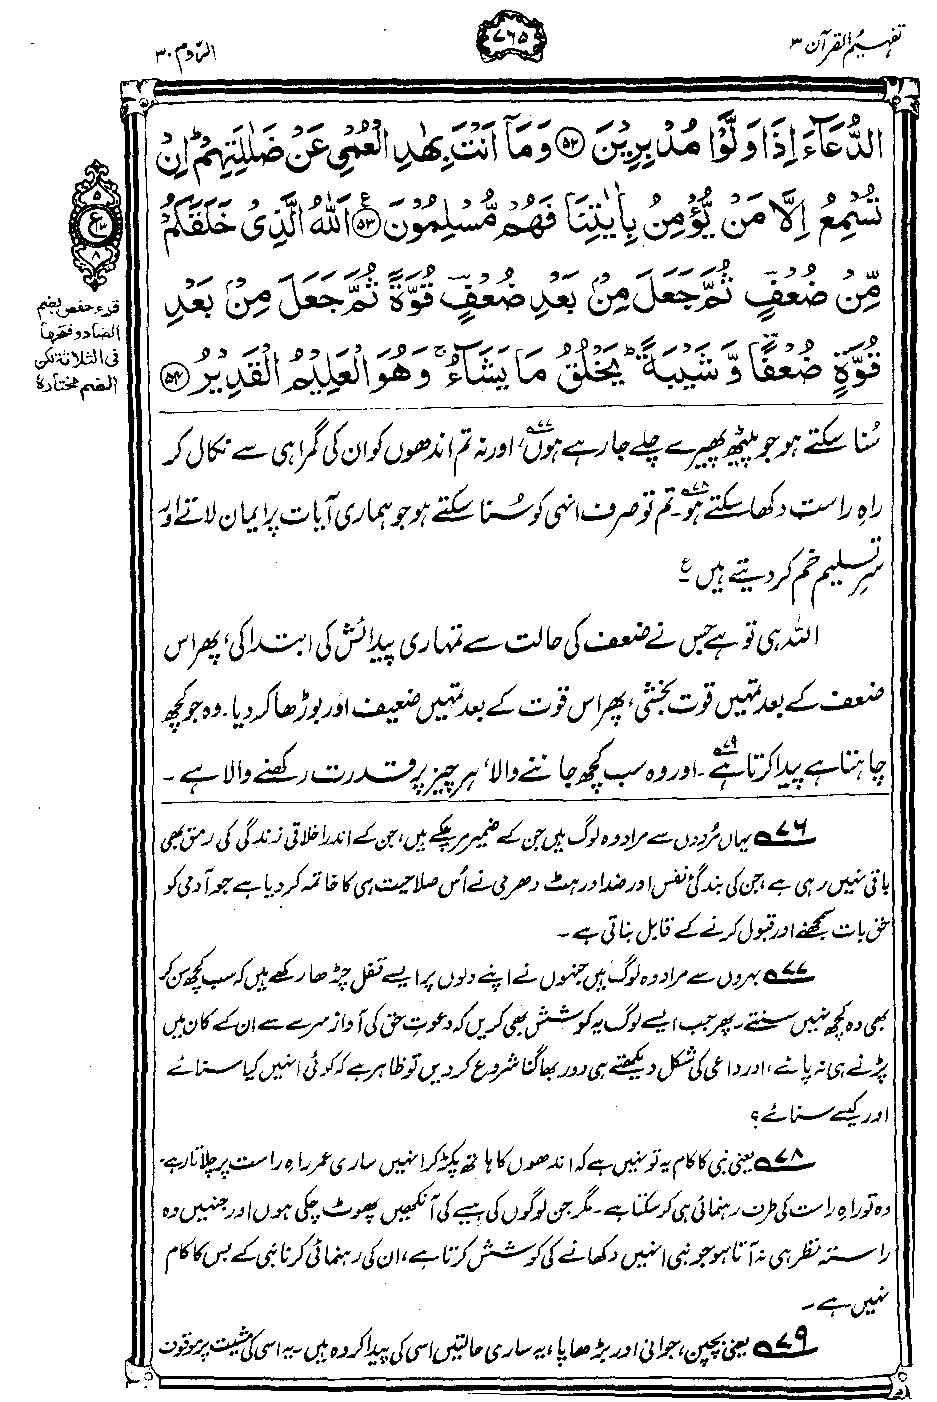 تفہیم القرآن ۳
۷۶۵
الرّوم ۳۰
الدُّعَآءَ اِذَا وَلَّوْا مُدْبِرِيْنَ ﴿۵۲﴾ وَمَآ اَنْتَ بِهٰدِ الْعُمْىِ عَنْ ضَلٰلَتِهِمْ ؕ اِنْ
تُسْمِعُ اِلَّا مَنْ يُّؤْمِنُ بِاٰيٰتِنَا فَهُمْ مُّسْلِمُوْنَ ﴿۵۳﴾ اَللّٰهُ الَّذِىْ خَلَقَكُمْ
مِّنْ ضُعْفٍ ثُمَّ جَعَلَ مِنْۢ بَعْدِ ضُعْفٍ قُوَّةً ثُمَّ جَعَلَ مِنْۢ بَعْدِ
قُوَّةٍ ضُعْفًا وَّشَيْبَةً ؕ يَخْلُقُ مَا يَشَآءُ ۚ وَهُوَ الْعَلِيْمُ الْقَدِيْرُ ﴿۵۴﴾
۵
ع
۸
قرء حفص بضم
الضاد وفتحها
فى الثلاثة لكن
الضم مختارة
سُنا سکتے ہو جو پیٹھ پھیرے چلے جا رہے ہوں۷۷، اور نہ تم اندھوں کو ان کی گمراہی سے نکال کر
راہِ راست دکھا سکتے ہو۷۸۔ تم تو صرف انہی کو سُنا سکتے ہو جو ہماری آیات پر ایمان لاتے اور
سرِ تسلیم خم کر دیتے ہیں ع
اللہ ہی تو ہے جس نے ضعف کی حالت سے تمہاری پیدائش کی ابتدا کی، پھر اس
ضعف کے بعد تمہیں قوت بخشی، پھر اس قوت کے بعد تمہیں ضعیف اور بوڑھا کر دیا۔ وہ جو کچھ
چاہتا ہے پیدا کرتا ہے۷۹۔ اور وہ سب کچھ جاننے والا، ہر چیز پر قدرت رکھنے والا ہے۔
۷۶ یہاں مُردوں سے مراد وہ لوگ ہیں جن کے ضمیر مر چکے ہیں، جن کے اندر اخلاقی زندگی کی رمق بھی
باقی نہیں رہی ہے، جن کی بندگیِ نفس اور ضد اور ہٹ دھرمی نے اُس صلاحیت ہی کا خاتمہ کر دیا ہے جو آدمی کو
حق بات سمجھنے اور قبول کرنے کے قابل بناتی ہے۔
۷۷ بہروں سے مراد وہ لوگ ہیں جنہوں نے اپنے دلوں پر ایسے قفل چڑھا رکھے ہیں کہ سب کچھ سن کر
بھی وہ کچھ نہیں سنتے۔ پھر جب ایسے لوگ یہ کوشش بھی کریں کہ دعوتِ حق کی آواز سرے سے ان کے کان میں
پڑنے ہی نہ پائے، اور داعی کی شکل دیکھتے ہی دور بھاگنا شروع کر دیں تو ظاہر ہے کہ کوئی انہیں کیا سنائے
اور کیسے سنائے؟
۷۸ یعنی نبی کا کام یہ تو نہیں ہے کہ اندھوں کا ہاتھ پکڑ کر انہیں ساری عمر راہِ راست پر چلاتا رہے۔
وہ تو راہِ راست کی طرف رہنمائی ہی کر سکتا ہے۔ مگر جن لوگوں کی ہیے کی آنکھیں پھوٹ چکی ہوں اور جنہیں وہ
راستہ نظر ہی نہ آتا ہو جو نبی انہیں دکھانے کی کوشش کرتا ہے، ان کی رہنمائی کرنا نبی کے بس کا کام
نہیں ہے۔
۷۹ یعنی بچپن، جوانی اور بڑھاپا، یہ ساری حالتیں اسی کی پیدا کردہ ہیں۔ یہ اسی کی مشیت پر موقوف